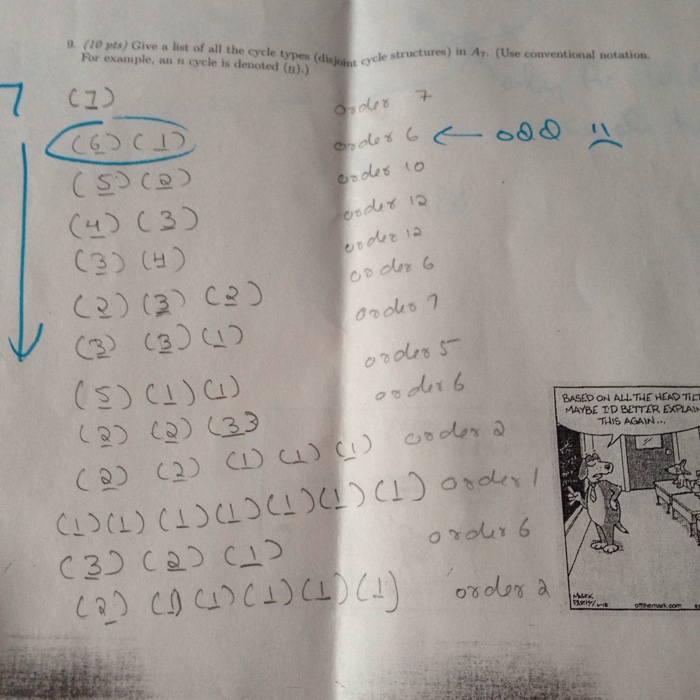 9. (10 pts) Give a list of all the cycle types (disjoint cycle structures) in A₇. (Use conventional notation.
For example, an n cycle is denoted (n).)
7
(7) order 7
(6) (1) order 6 ← odd
(5) (2) order 10
(4) (3) order 12
(3) (4) order 12
(2) (3) (2) order 6
(3) (3) (1) order 7
(5) (1) (1) order 5
(2) (2) (3) order 6
(2) (2) (1) (1) (1) order 2
(1) (1) (1) (1) (1) (1) (1) order 1
(3) (2) (1) order 6
(2) (1) (1) (1) (1) (1) order 2
BASED ON ALL THE HEAD TILT
MAYBE I'D BETTER EXPLAIN
THIS AGAIN...
offthemark.com